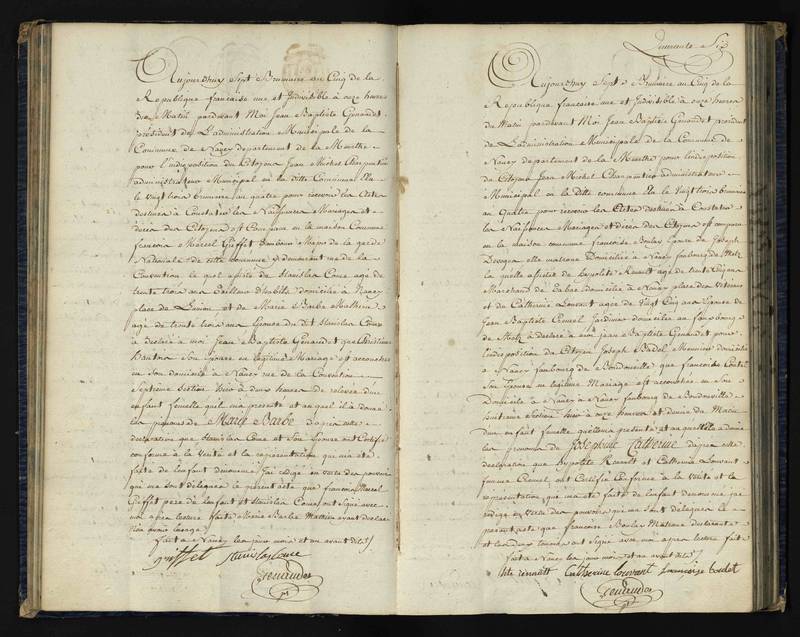 Aujourd'huy Sept Brumaire an Cinq de la
Republique francaise une et Indivisible à onze heures
du Matin pardevant Moi Jean Baptiste Genaudet
président de L'administration Municipale de la
Commune de Nancy departement de la Meurthe
pour l'indisposition du Citoyen Jean Michel Charpentier
administrateur Municipal en la ditte Commune Elu
le vingt trois brumaire an quatre pour recevoir les Actes
destinés à Constater les Naissances Mariages et
décès des Citoyens est Comparu en la maison Commune
francois Marcel Tambour Major de la garde
Nationale de cette commune y demeurant rue de la
Convention le quel assisté de Stanislas Coue agé de
trente trois ans Tailleur d'habits domicilié à Nancy
place de et de Marie Barbe Mathieu
agée de trente trois ans Epouse du dit Stanislas Coue
a déclaré à moi Jean Baptiste Genaudet que Christine
Son Epouse en légitime Mariage est accouchée
en Son domicile à Nancy rue de la Convention
Septieme Section hier à heures de relevée d'un
enfant femelle qu'il m'a présenté et au quel il a donné
les prenoms de Marie Barbe D'apres cette
declaration que Stanislas Coue et Son Epouse ont Certifié
conforme à la vérité et la représentation qui m'a été
faite de l'enfant denommé J'ai rédigé en vertu des pouvoirs
qui me sont délégués le présent acte que francois Marcel
pere de l'enfant et Stanislas Coue ont signé avec
moi apres lecture faite Marie Barbe Mathieu ayant déclaré
fait à Nancy les jour mois et an avant dits
Stanislas Coue
Genaudet
Quarente Six
Aujourd'huy Sept Brumaire an Cinq de la
Republique francaise une et Indivisible à onze heures
du Matin pardevant Moi Jean Baptiste Genaudet président
de L'administration Municipale de la Commune de
Nancy departement de la Meurthe pour l'indisposition
du Citoyen Jean Michel Charpentier administrateur
Municipal en la ditte commune Elu le vingt trois brumaire
an Quatre pour recevoir les Actes destinés à Constater
les Naissances Mariages et décès des Citoyens est comparu
en la maison commune francoise Epouse de Joseph
matrone domiciliée à Nancy faubourg de Metz
la quelle assistée de hypolite Renault agé de
Marchand de tabac domicilié à Nancy place
et de Catherine Louvant agée de Vingt Cinq ans Epouse de
Jean Baptiste Jardinier domiciliée au fauxbourg
de Metz à déclaré à moi Jean Baptiste Genaudet pour
l'indisposition du Citoyen Joseph Badel domicilié
à Nancy faubourg de Boudonville que francoise
Son Epouse en legitime Mariage est accouchée en Son
Domicile à Nancy à Nancy faubourg de Boudonville
huitieme Section hier à onze heures et demie du Matin
d'un enfant femelle qu'elle m'a présenté et au quel elle a donné
les prenoms de Josephine Catherine D'apres cette
declaration que hypolite Renault et Catherine Louvant
femme ont Certifié Conforme à la vérité et la
représentation qui m'a été faite de l'enfant denommé j'ai
rédigé en vertu des pouvoirs qui me sont délégués le
présent acte que francoise Matrone
et les deux temoins ont signé avec moi apres lecture faite
fait à Nancy les jour mois et an avant dits
Catherine Louvant francoise
Genaudet